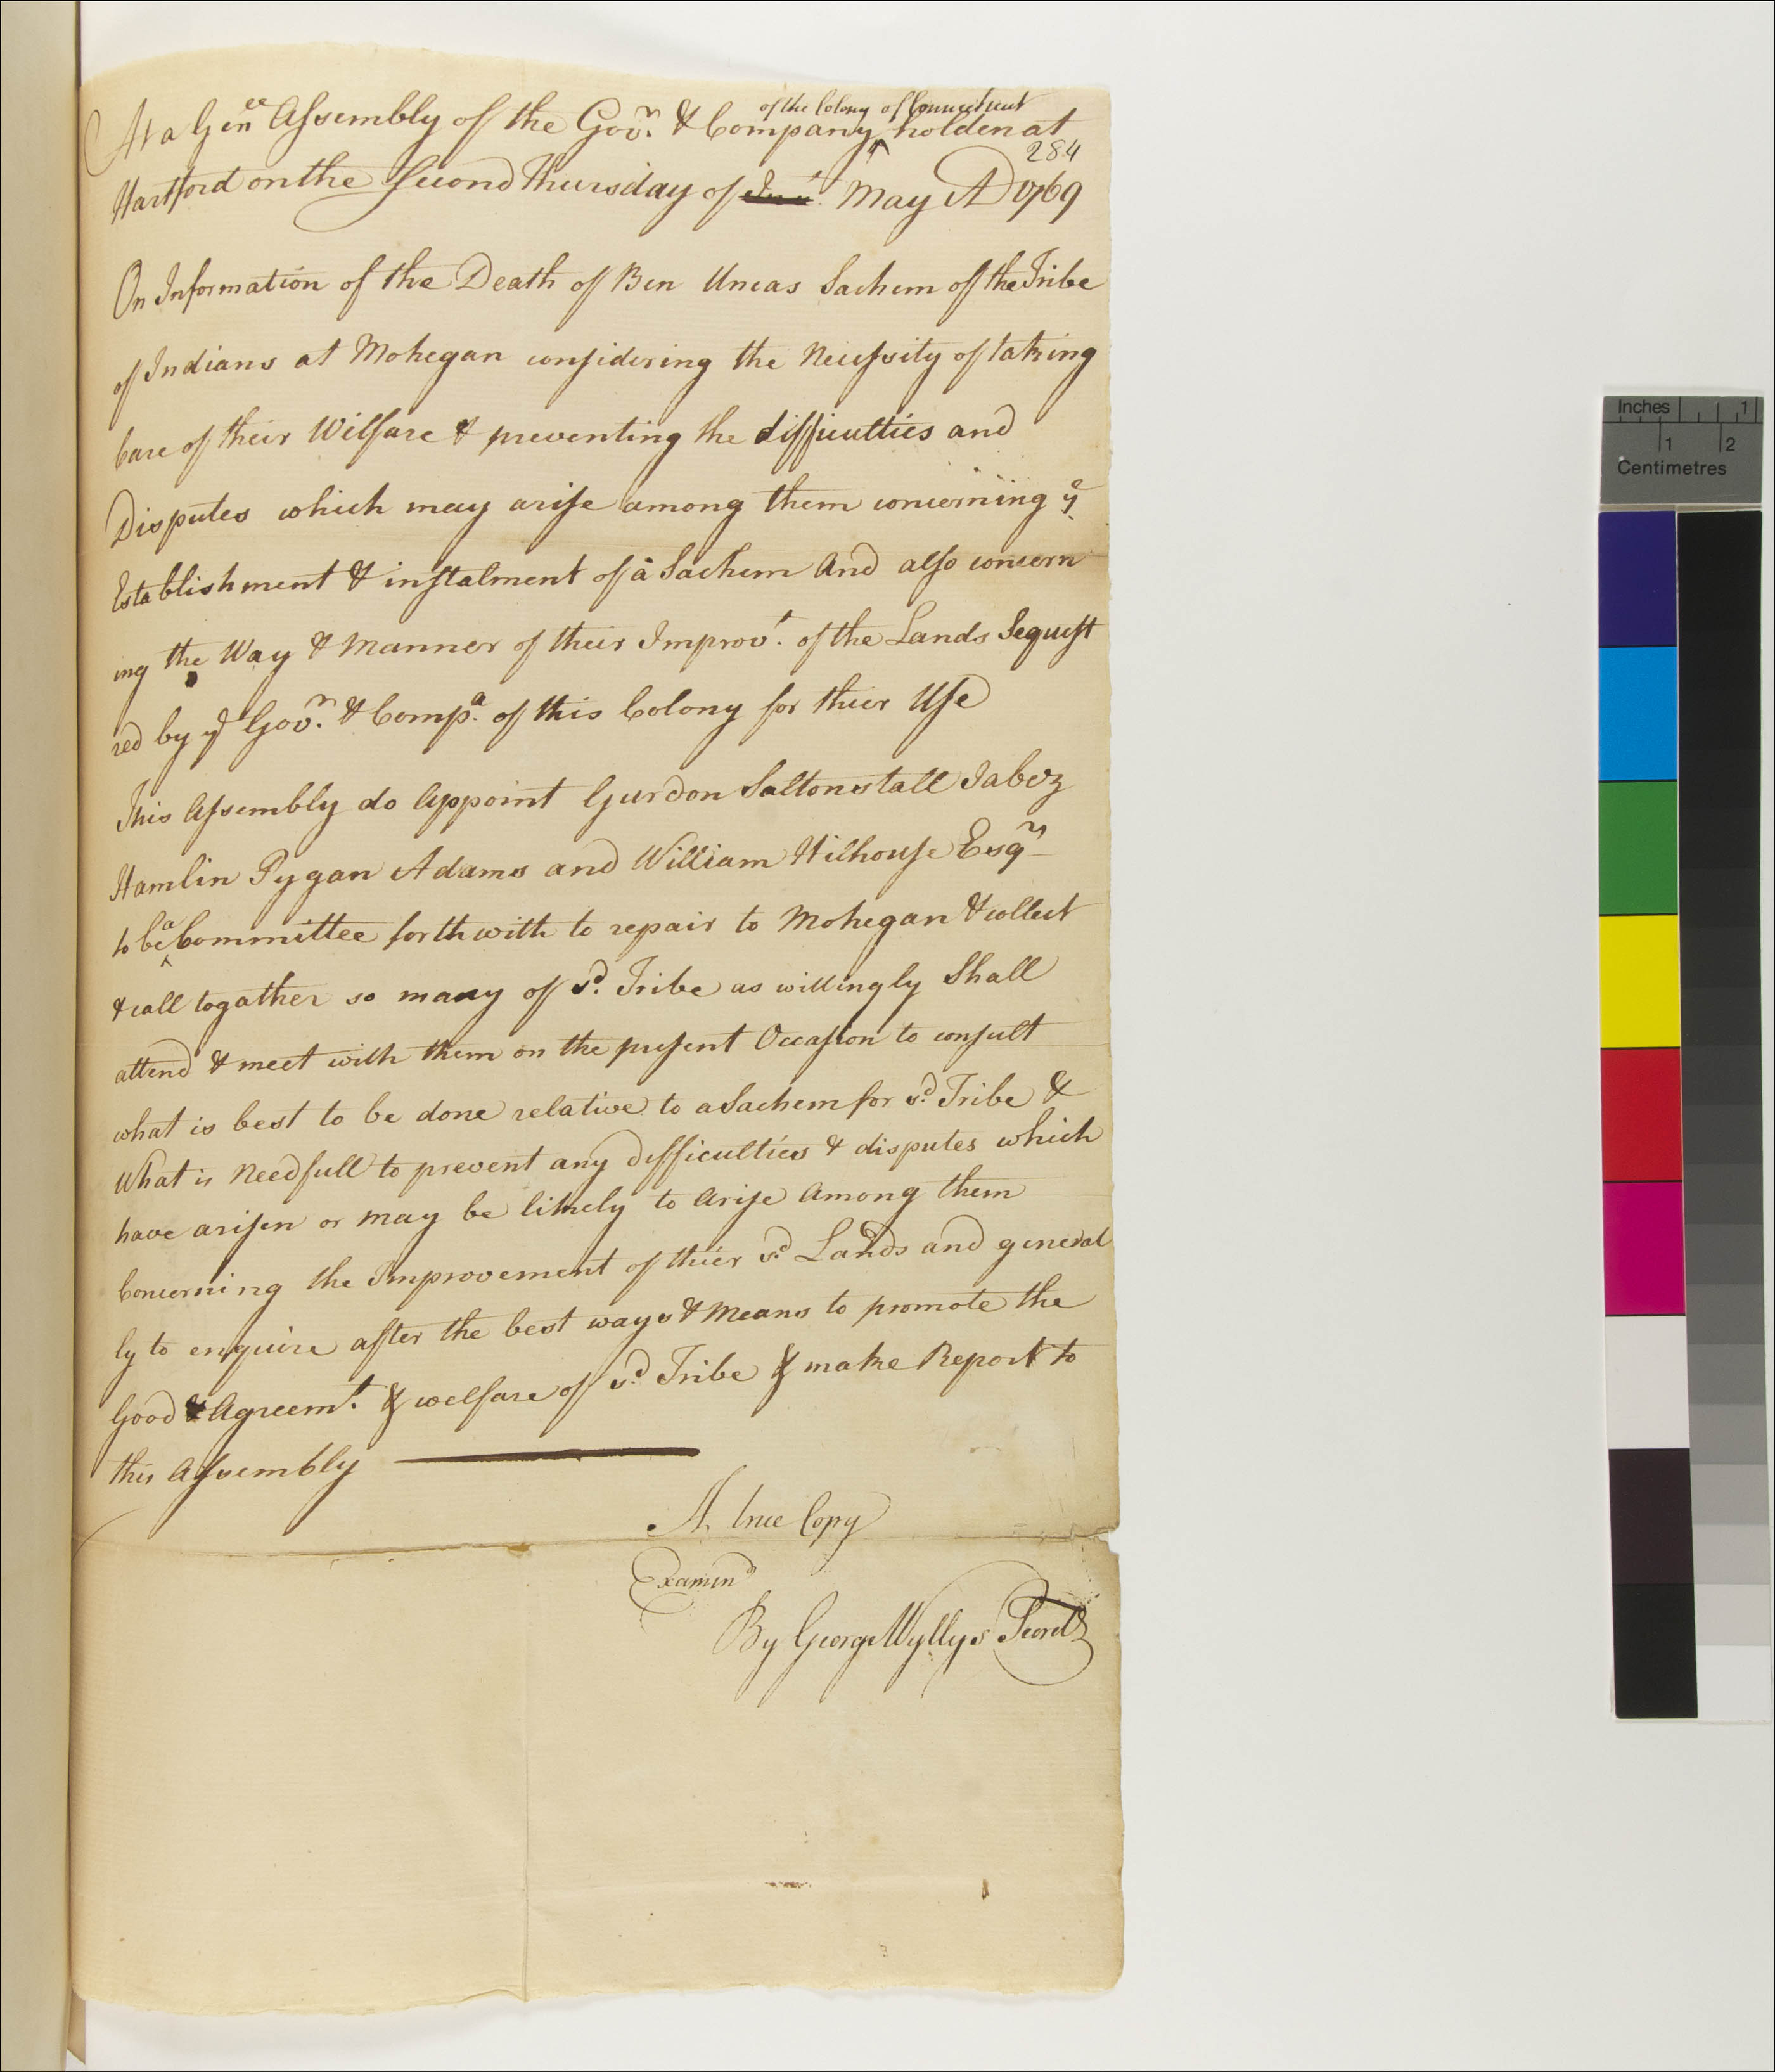 of the Colony of Connecticut
At a Gen^ll Assembly of the Gov^r. & Company ^ holden at
284
Hartford on the Second Thursday of May AD 1769
On Information of the Death of Ben Uncas Sachem of the Tribe
of Indians at Mohegan considering the Necessity of taking
Care of their Wilfare & preventing the difficulties and
Disputes which may arise among them concerning y^e
Establishment & instalment of a Sachem And also concern
ing the Way & Manner of their Improv^t. of the Lands Sequest
red by y^e Gov^r. & Comp^a. of this Colony for thier Use
This Assembly do Appoint Gurdon Saltonstall Jabez
Hamlin Pygan Adams and William Hilhouse Esq^rs
to be ^a Committee forthwith to repair to Mohegan & collect
& call togather so many of s^d. Tribe as willingly Shall
attend & meet with them on the present Occasion to consult
what is best to be done relative to a Sachem for s^d. Tribe &
What is Needfull to prevent any difficulties & disputes which
have arisen or may be likely to Arise Among them
Concerning the Improvement of thier s^d Lands and general
ly to enquire after the best ways & Means to promote the
Good & Agreem^t. & welfare of s^d. Tribe & make Report to
this Assembly
A true Copy
Examin^d
By George Wyllys Secret^y
Inches 1
1 2
Centimetres